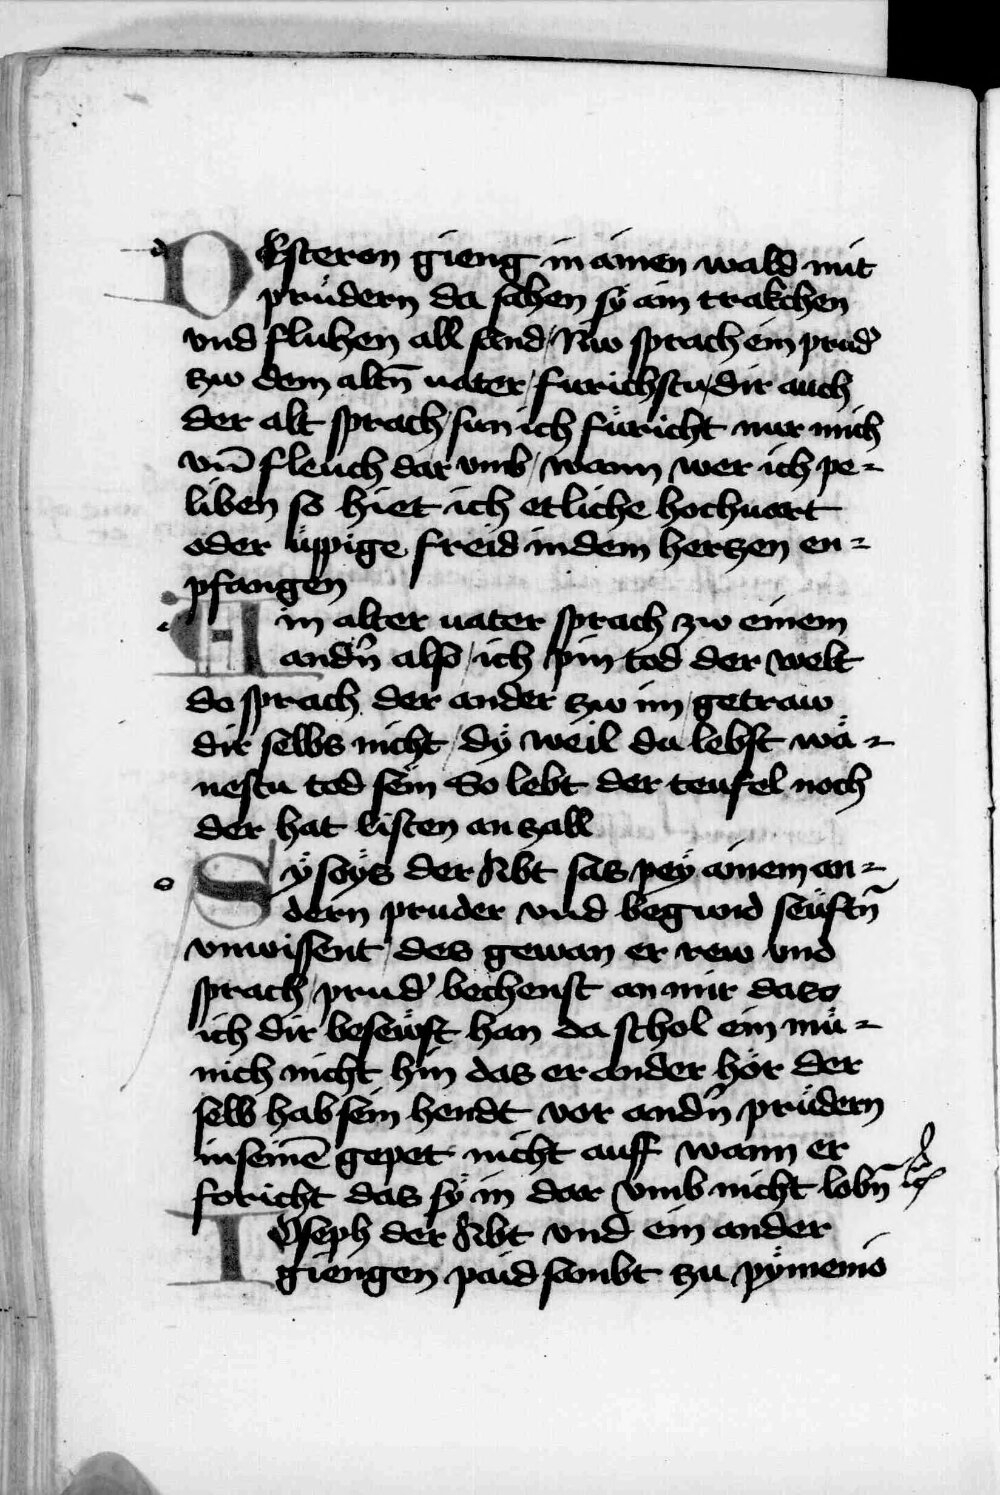 Desteron gieng in ainen wald mit
prüdern da sahen sÿ ain trakchen
vnd fluhen all sand / Nw sprach ein prud'
zw dem altn̄ uater / furichstu / dir auch
der alt sprach / sun ich füricht nur mich
vn̄ fleuch dar vmb / wann wer ich pe-
liben so hiet ich etliche hochuart
oder üppige freid in dem hertzen en-
pfangen
Ain alter uater sprach zw einem
andn̄ also / ich pin tod der welt
do sprach der ander zw im getraw
dir selbs nicht / dÿ weil du lebst wä-
nestu tod sein So lebt der teufel noch
der hat listen an zall
Sÿsoÿs der Abt sas peÿ ainem an-
dern pruder vnd begund seüftn̄
vnwissent / des gewan er rew vnd
sprach / prud' bechenst an mir das
ich dir beseüft han da schol ein mü-
nich nicht hin das er ander hör der
selb hab sein hendt vor andn̄ prüdern
in seinē gepet nicht auff wann er
foricht das sÿ in dar vmb nicht lobn̄
Ioseph der Abt vnd ein ander
giengen paid sambt zu pÿmenio